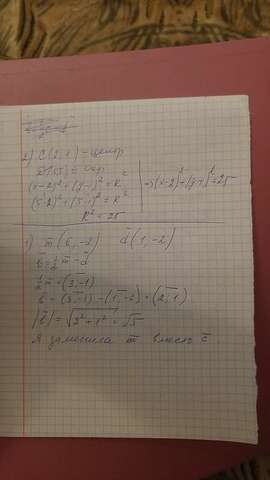 2) C(2, 1) – центр
D(5, 5) – окр
(x-2)²+(y-1)² = R²
(5-2)²+(5-1)² = R²
R² = 25
=> (x-2)²+(y-1)²=25
1) m̅(6, -2) d̅(1, -2)
b̅=½m̅-d̅
½m̅=(3;-1)
b̅ = (3,-1) - (1,-2) = (2, 1)
|b̅| = √2²+1² = √5
Я заменила m̅ вместо c̅